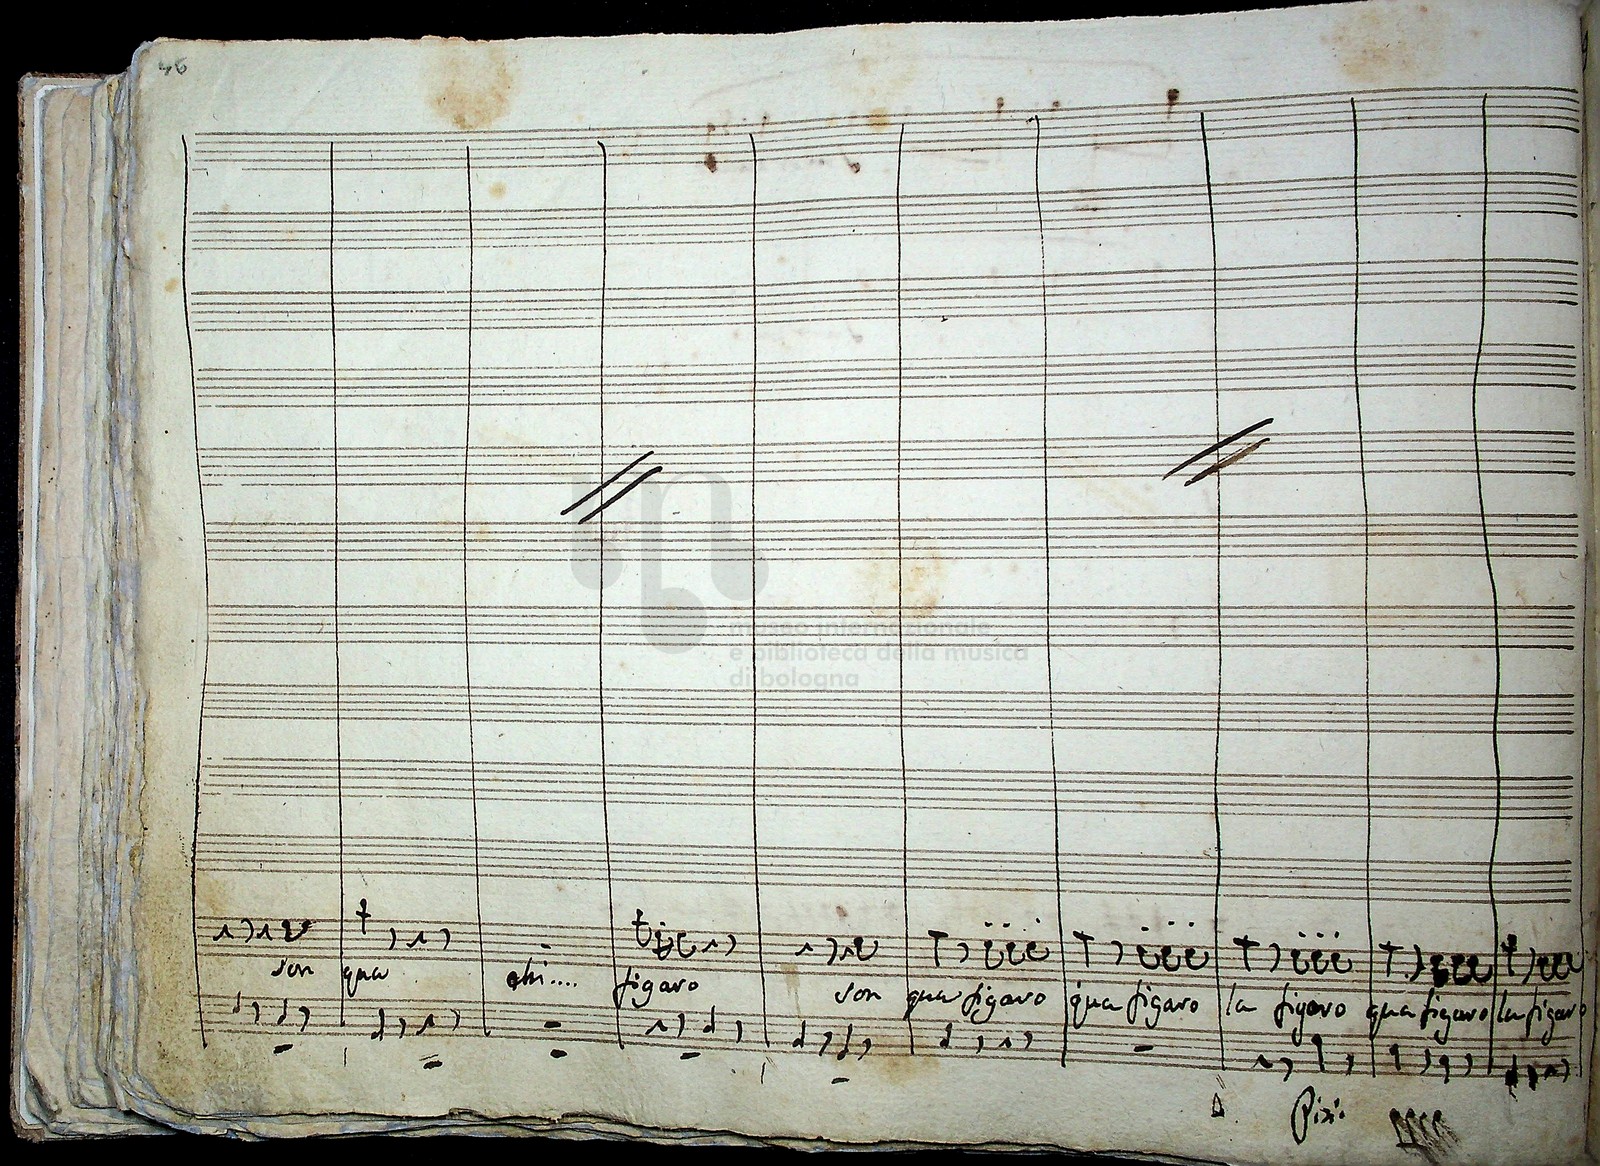 46
museo internazionale
e biblioteca della musica
di bologna
son qua ehi.... figaro son qua figaro qua figaro la figaro qua figaro la figaro
Pizi.